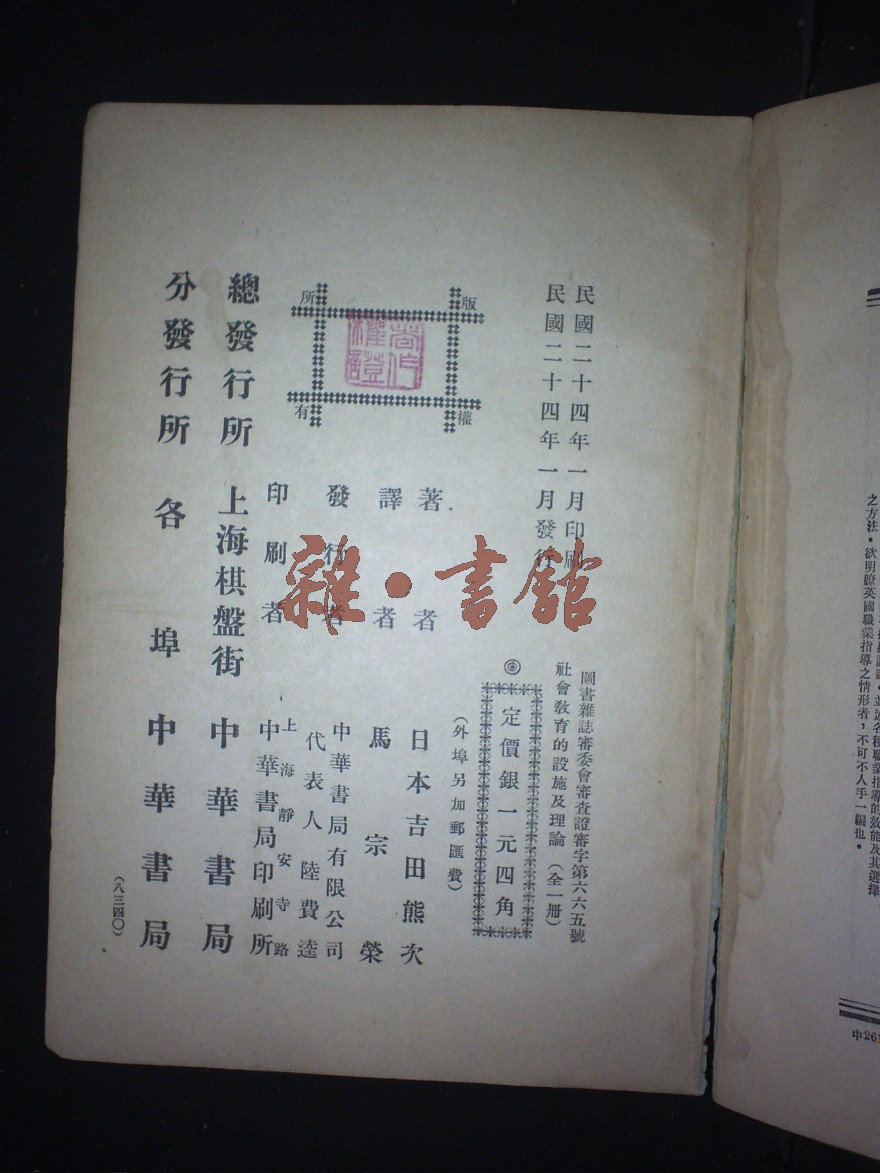 民國二十四年一月印刷
民國二十四年一月發行
圖書雜誌審委會審查證審字第六六五號
社會教育的設施及理論（全一册）
◎定價銀一元四角
（外埠另加郵匯費）
版權所有
著者 日本吉田熊次
譯者 馬宗榮
發行者 中華書局有限公司
代表人 陸費逵
印刷者 上海靜安寺路
中華書局印刷所
總發行所 上海棋盤街 中華書局
分發行所 各埠 中華書局
（八三四〇）
雜·書館
各種職業指導的效能及其選擇
之方法。欲明瞭英國職業指導之情形者，不可不人手一編也。
中26